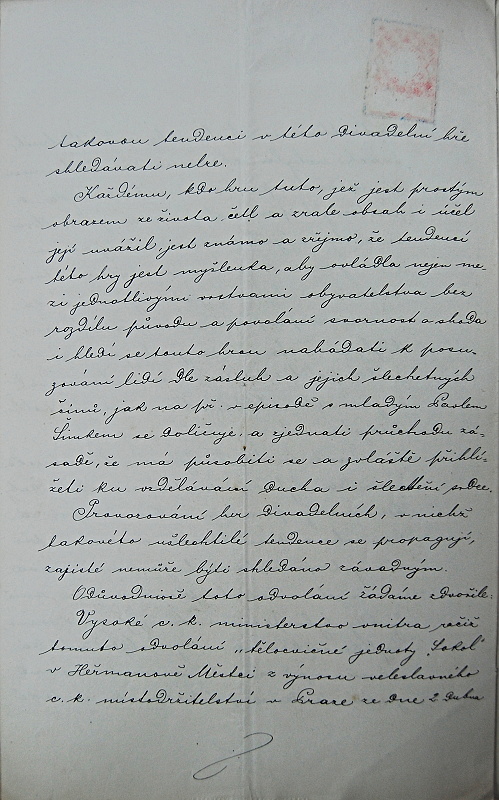 takovou tendenci v této divadelní hře
shledávati nelze.
Každému, kdo hru tuto, jež jest prostým
obrazem ze života, četl a zrale obsah i účel
její uvážil, jest známo a zřejmo, že tendencí
této hry jest myšlenka, aby ovládla nejen me-
zi jednotlivými vrstvami obyvatelstva bez
rozdílu původu a povolání svornost a shoda
i hledí se touto hrou nabádati k posu-
zování lidí dle zásluh a jejich šlechetných
činů, jak na př. v episodě s mladým Pavlem
Šimkem se doličuje, a zjednati průchodu zá-
sadě, že má působiti se a zvláště přihlí-
žeti ku vzdělávání ducha i šlechtění srdce.
Provozování her divadelních, v nichž
takovéto ušlechtilé tendence se propagují,
zajisté nemůže býti shledáno závadným.
Odůvodnivše toto odvolání žádáme zdvořile:
Vysoké c. k. ministerstvo vnitra račiž
tomuto odvolání „tělocvičné jednoty Sokol"
v Heřmanově Městci z výnosu veleslavného
c. k. místodržitelství v Praze ze dne 2. dubna